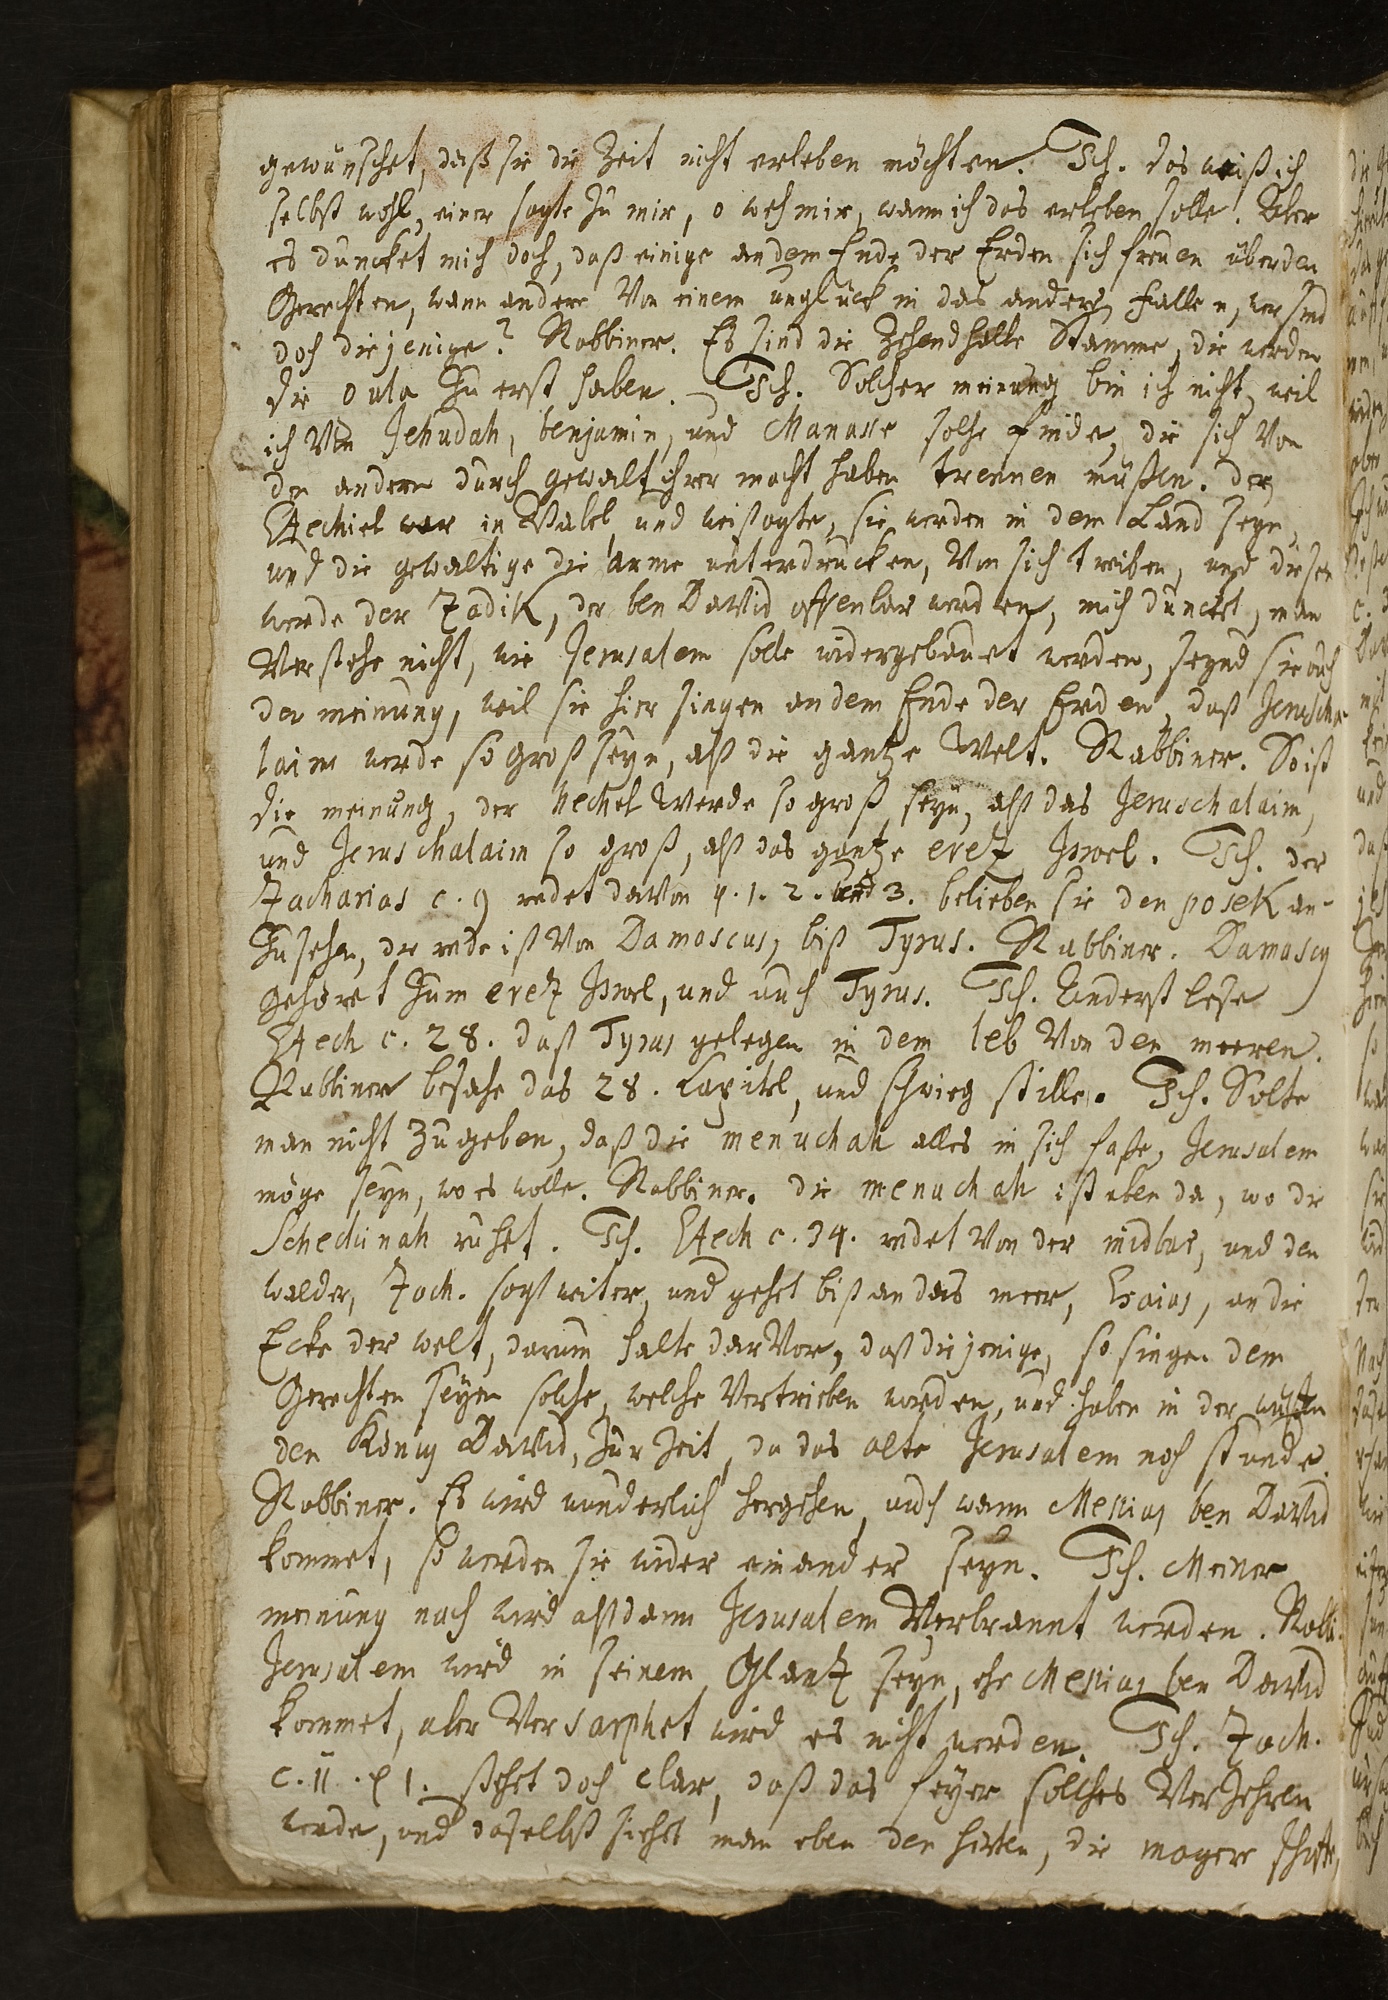 gewünschet, daß sie die Zeit nicht erleben möchten. Tsch. das weiß ich
selbst wohl, einer sagte zu mir, o weh mir, wann ich das erleben solle! Aber
es duncket mich doch, daß einige an dem Ende der Erden sich freuen über den
Gerechten, wann andere Von einem unglück in das andere fallen, wer sind
doch diejenige? Rabbiner. Es sind die Zehendhalbe Stämme, die werden
die Gula zu erst haben. Tsch. Solcher meinung bin ich nicht, weil
ich Von Jehudah, benjamin, und Manasse solche finde, die sich Von
den andern durch gewalt ihrer macht haben trennen müßen. der
Ezechiel war in Babel, und weißagte, sie werden in dem Land seyn,
und die gewaltige die arme unterdrucken, Von sich treiben, und diesen
werde der Zadik, der ben David offenbar werden, mich dunckt, man
Verstehe nicht, wie Jerusalem solle widergebauet werden, seynd sie auch
der meinung, weil sie hier singen an dem Ende der Erden, daß Jeruscha-
laim werde so groß seyn, alß die gantze Welt. Rabbiner. So ist
die meinung, der hechel werde so groß seyn, alß das Jeruschalaim,
und Jeruschalaim so groß, alß das gantze erez Jsrael. Tsch. der
Zacharias c. 9 redet davon v. 1. 2. und 3. belieben sie den posek an-
zusehen, die rede ist Von Damascus, biß Tyrus. Rabbiner. Damascus
gehöret zum erez Jsrael, und auch Tyrus. Tsch. Anderst lese
Ezech c. 28. daß Tyrus gelegen in dem leb Von den meeren.
Rabbiner besahe das 28. Capitel, und schwieg stille. Tsch. Solte
man nicht zugeben, daß die menuchah alles in sich faße, Jerusalem
möge seyn, wo es wolle. Rabbiner. die menuchah ist eben da, wo die
Schechinah ruhet. Tsch. Ezech c. 34. redet Von der midbar, und den
wälder, Zach. sagt weiter, und gehet biß an das meer, Esaias, an die
Ecke der welt, darum halte darvor, daß diejenige, so singen dem
Gerechten seyen solche, welche Vertrieben worden, und haben in der wüsten
den König David, zur Zeit, da das alte Jerusalem noch stunde.
Rabbiner. Es wird wunderlich hergehen, auch wann Messias ben David
kommet, so werden sie wider einander seyn. Tsch. Meiner
meinung nach wird alßdann Jerusalem Verbrannt werden. Rabbi.
Jerusalem wird in seinem Glantz seyn, ehe Messias ben David
kommet, aber Versarphet wird es nicht werden. Tsch. Zach.
c. 11. v 1. stehet doch clar, daß das feyer solches Verzehren
werde, und daselbst siehet man eben den hirten, die magere schaffe,